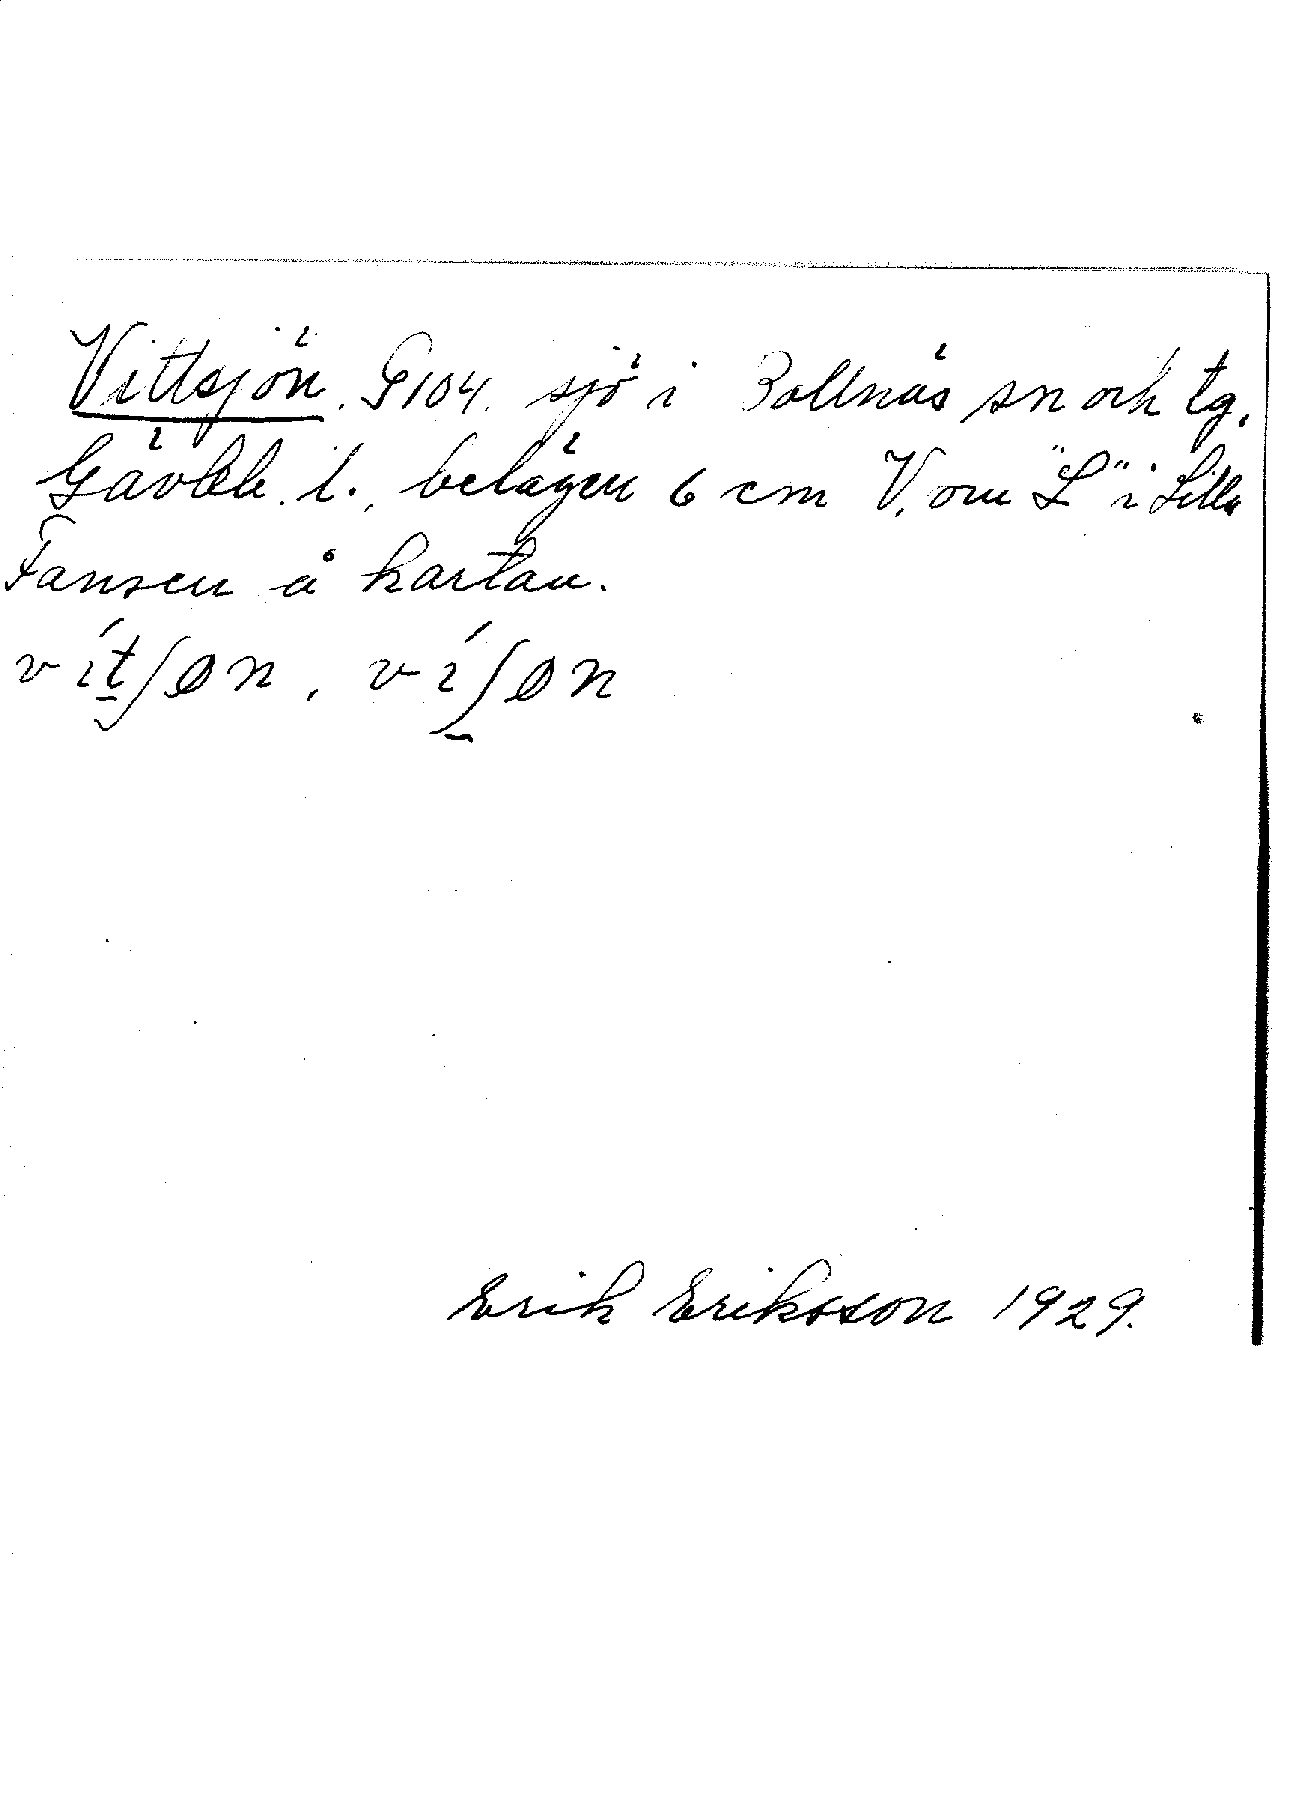 Vittsjön. G104. sjö i Bollnäs sn och tg.
Gävleb. l., belägen 6 cm V. om "L" i Lilla
Fansen å kartan.
vít̠ʃøn, víʃ̠øn
Erik Eriksson 1929.